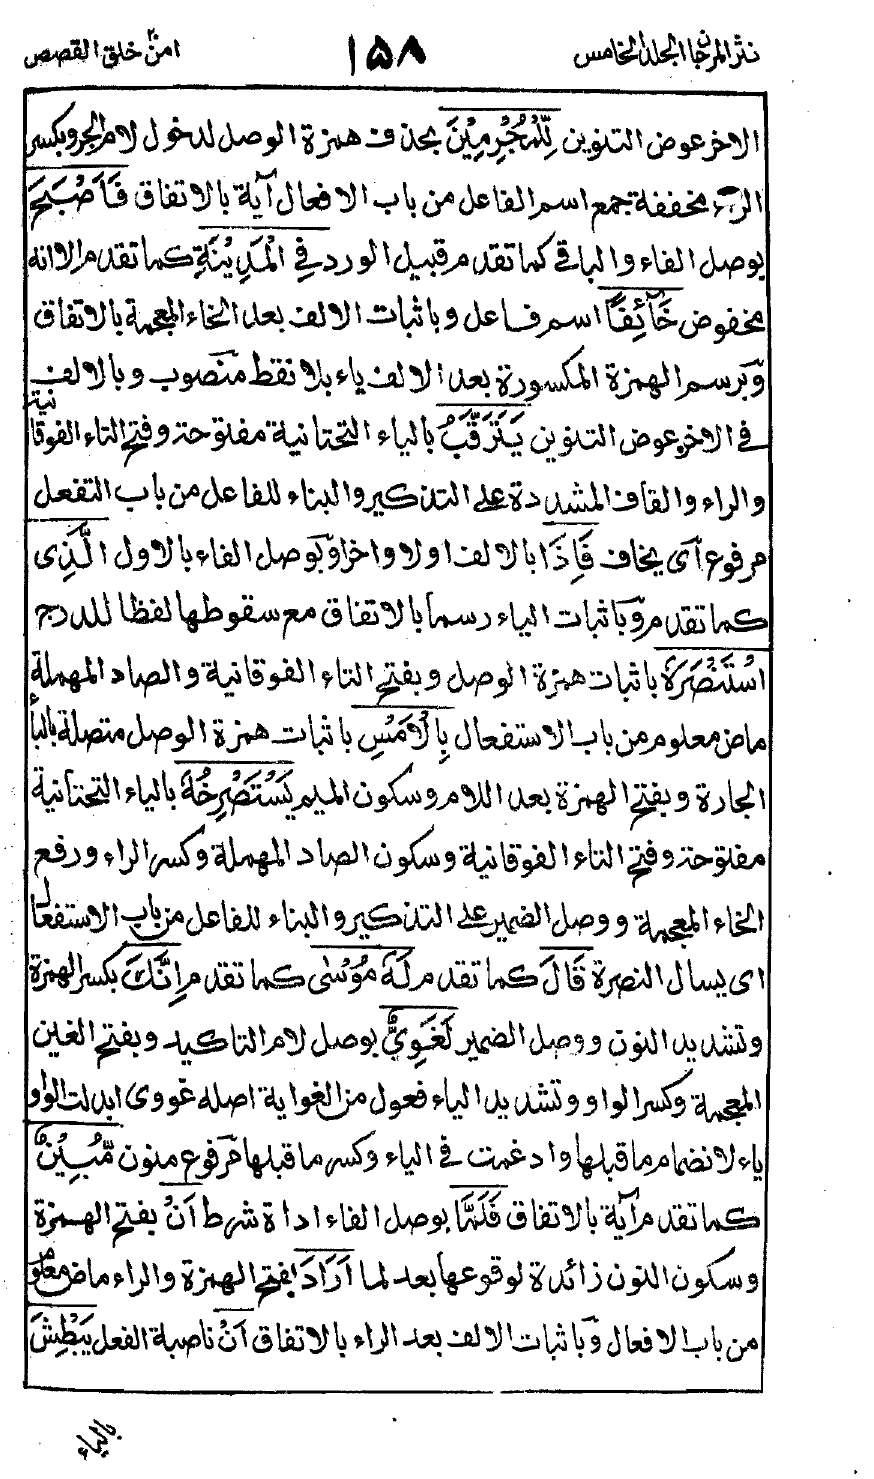 نثر المرجان الجلد الخامس
١٥٨
امن خلق القصص
الاخر عوض التنوين لِّلْمُجْرِمِيْنَ بحذف همزة الوصل لدخول لام الجر وبكسر
الراء مخففة جمع اسم الفاعل من باب الافعال آية بالاتفاق فَاَصْبَحَ
بوصل الفاء والباقي كما تقدم قبيل الورد فِي الْمَدِيْنَةِ كما تقدم الا انه
مخفوض خَآئِفًا اسم فاعل وباثبات الالف بعد الخاء المعجمة بالاتفاق
وبرسم الهمزة المكسورة بعد الالف ياء بلا نقط منصوب وبالالف
في الاخر عوض التنوين يَتَرَقَّبُ بالياء التحتانية مفتوحة وفتح التاء الفوقانية
والراء والقاف المشددة على التذكير والبناء للفاعل من باب التفعل
مرفوع آى يخاف فَاِذَا بالالف اولا واخرا وبوصل الفاء بالاول الَّذِى
كما تقدم وباثبات الياء رسما بالاتفاق مع سقوطها لفظا للدرج
اسْتَنْصَرَهٗ باثبات همزة الوصل وبفتح التاء الفوقانية والصاد المهملة
ماض معلوم من باب الاستفعال بِالْاَمْسِ باثبات همزة الوصل متصلة بالباء
الجارة وبفتح الهمزة بعد اللام وسكون الميم يَسْتَصْرِخُهٗ بالياء التحتانية
مفتوحة وفتح التاء الفوقانية وسكون الصاد المهملة وكسر الراء ورفع
الخاء المعجمة ووصل الضمير على التذكير والبناء للفاعل من باب الاستفعال
اى يسال النصرة قَالَ كما تقدم لَهٗ مُوْسٰى كما تقدم اِنَّكَ بكسر الهمزة
وتشديد النون ووصل الضمير لَغَوِيٌّ بوصل لام التاكيد وبفتح الغين
المعجمة وكسر الواو وتشديد الياء فعول من الغواية اصله غووى ابدلت الواو
ياء لانضمام ما قبلها وادغمت في الياء وكسر ما قبلها مرفوع منون مُّبِيْنٌ
كما تقدم آية بالاتفاق فَلَمَّا بوصل الفاء اداة شرط اَنْ بفتح الهمزة
وسكون النون زائدة لوقوعها بعد لما اَرَادَ بفتح الهمزة والراء ماض معلوم
من باب الافعال وباثبات الالف بعد الراء بالاتفاق اَنْ ناصبة الفعل يَبْطِشَ
بالياء